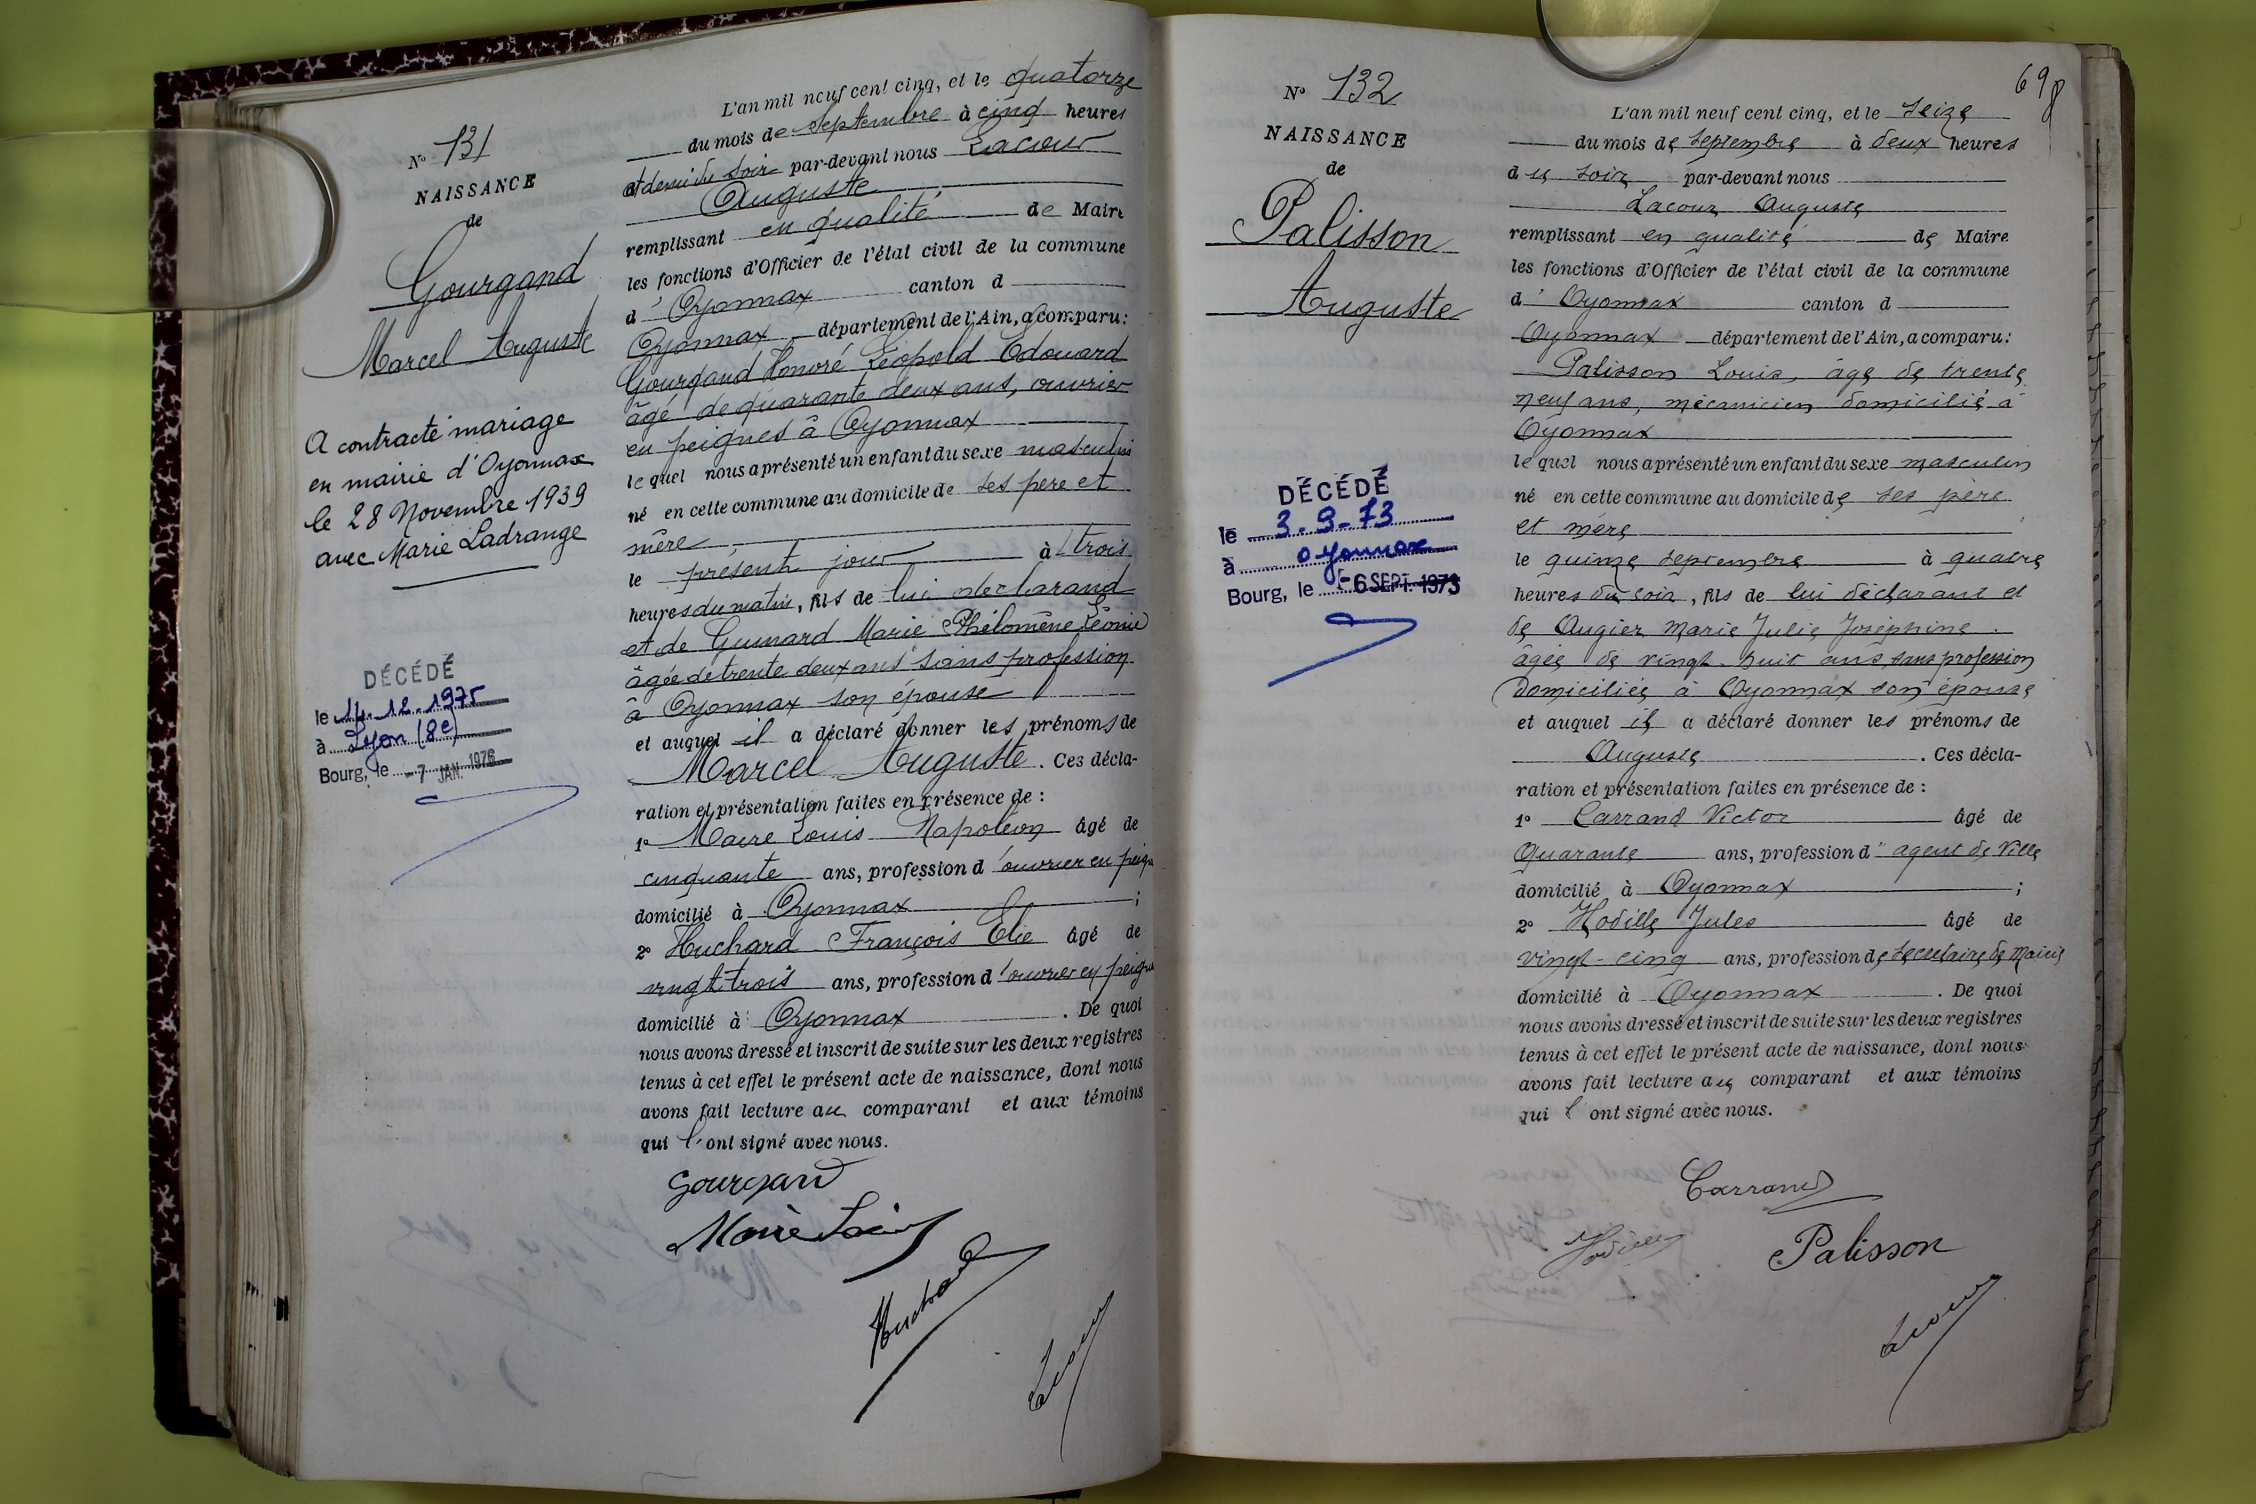 N° 131
NAISSANCE
de
Gourgand
Marcel Auguste
A contracté mariage
en mairie d'Oyonnax
le 28 Novembre 1939
avec Marie Ladrange
DÉCÉDÉ
le 14.12.1975
à Lyon (8e)
Bourg, le -7 JAN. 1976
L'an mil neuf cent cinq, et le quatorze
du mois de Septembre à cinq heures
et demi du soir par-devant nous Lacour
Auguste
remplissant en qualité de Maire
les fonctions d'Officier de l'état civil de la commune
d' Oyonnax canton d
Oyonnax département de l'Ain, a comparu:
Gourgand Honoré Léopold Edouard
âgé de quarante deux ans, ouvrier
en peignes à Oyonnax
lequel nous a présenté un enfant du sexe masculin
né en cette commune au domicile de ses père et
mère
le présent jour à trois
heures du matin, fils de lui déclarand
et de Guinard Marie Philomène Léonie
âgée de trente deux ans sans profession
à Oyonnax son épouse
et auquel il a déclaré donner les prénoms de
Marcel Auguste. Ces décla-
ration et présentation faites en présence de :
1° Maire Louis Napoléon âgé de
cinquante ans, profession d'ouvrier en peign
domicilié à Oyonnax ;
2° Huchard François Elie âgé de
vingt trois ans, profession d'ouvrier en peign
domicilié à Oyonnax. De quoi
nous avons dressé et inscrit de suite sur les deux registres
tenus à cet effet le présent acte de naissance, dont nous
avons fait lecture au comparant et aux témoins
qui l'ont signé avec nous.
Gourgand
Maire Louis
Huchard
Lacour
698
N° 132
NAISSANCE
de
Palisson
Auguste
DÉCÉDÉ
le 3.9.73
à Oyonnax
Bourg, le -6 SEPT. 1973
L'an mil neuf cent cinq, et le seize
du mois de septembre à deux heures
du soir par-devant nous
Lacour Auguste
remplissant en qualité de Maire
les fonctions d'Officier de l'état civil de la commune
d' Oyonnax canton d
Oyonnax département de l'Ain, a comparu:
Palisson Louis, âgé de trente
neuf ans, mécanicien domicilié à
Oyonnax
lequel nous a présenté un enfant du sexe masculin
né en cette commune au domicile de ses père
et mère
le quinze septembre à quatre
heures du soir, fils de lui déclarant et
de Augier Marie Julie Joséphine.
âgée de vingt-huit ans, sans profession
domiciliée à Oyonnax son épouse
et auquel il a déclaré donner les prénoms de
Auguste. Ces décla-
ration et présentation faites en présence de :
1° Carrand Victor âgé de
Quarante ans, profession d'agent de Ville
domicilié à Oyonnax ;
2° Hodille Jules âgé de
vingt-cinq ans, profession de secrétaire de Mairie
domicilié à Oyonnax. De quoi
nous avons dressé et inscrit de suite sur les deux registres
tenus à cet effet le présent acte de naissance, dont nous
avons fait lecture au comparant et aux témoins
qui l'ont signé avec nous.
Carrand
Hodille
Palisson
Lacour